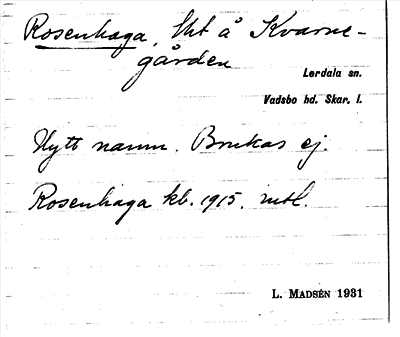 Rosenhaga, lht å Kvarne-
gården
Lerdala sn.
Vadsbo hd. Skar. l.
Nytt namn. Brukas ej.
Rosenhaga kb. 1915. mtl.
L. MADSÉN 1931